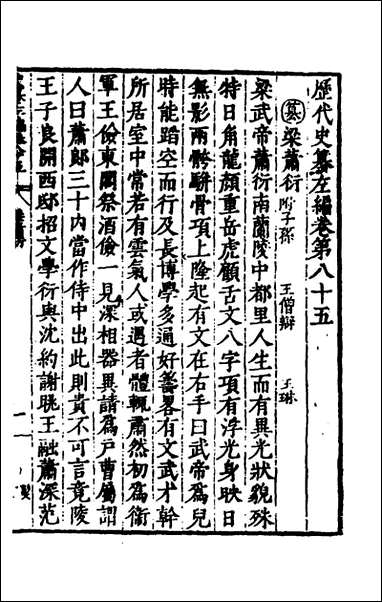 歷代史纂左編卷第八十五
篡 梁蕭衍 附子孫 王僧辯 王琳
梁武帝蕭衍南蘭陵中都里人生而有異光狀貌殊
特日角龍顏重岳虎顧舌文八字項有浮光身映日
無影兩骻駢骨項上隆起有文在右手曰武帝爲兒
時能蹈空而行及長博學多通好籌畧有文武才幹
所居室中常若有雲氣人或遇者體輒肅然初爲衛
軍王儉東閣祭酒儉一見深相器異請爲戶曹屬謂
人曰蕭郎三十内當作侍中出此則貴不可言竟陵
王子良開西邸招文學衍與沈約謝朓王融蕭深范